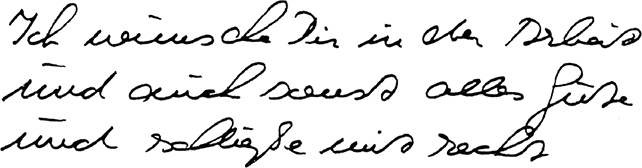 Ich wünsche Dir in der Arbeit
und auch sonst alles Gute
und schließe mit recht